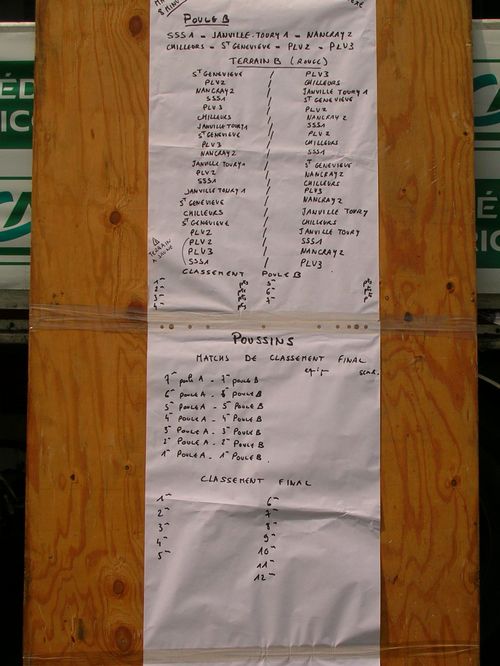 8 MINU
POULE B
SSS1 = JANVILLE-TOURY 1 = NANCRAY 2
CHILLEURS = ST GENEVIEVE = PLV2 = PLV3
TERRAIN B (ROUGE)
ST GENEVIEVE / PLV3
PLV2 / CHILLEURS
NANCRAY 2 / JANVILLE TOURY 1
SSS1 / ST GENEVIEVE
PLV3 / PLV2
CHILLEURS / NANCRAY 2
JANVILLE TOURY 1 / SSS1
ST GENEVIEVE / PLV2
PLV3 / CHILLEURS
NANCRAY 2 / SSS1
JANVILLE TOURY 1 / ST GENEVIEVE
PLV2 / NANCRAY 2
SSS1 / CHILLEURS
JANVILLE TOURY 1 / PLV3
ST GENEVIEVE / NANCRAY 2
CHILLEURS / JANVILLE TOURY
ST GENEVIEVE / CHILLEURS
PLV2 / JANVILLE TOURY
PLV2 / SSS1
PLV3 / NANCRAY 2
SSS1 / PLV3
TERRAIN
CLASSEMENT POULE B
1
2
3
4
5
6
7
POUSSINS
MATCHS DE CLASSEMENT FINAL
7 poule A - 7 poule B
6 poule A - 6 poule B
5 POULE A - 5 POULE B
4 POULE A - 4 POULE B
3 POULE A - 3 POULE B
2 POULE A - 2 POULE B
1 POULE A - 1 POULE B
CLASSEMENT FINAL
1
2
3
4
5
6
7
8
9
10
11
12